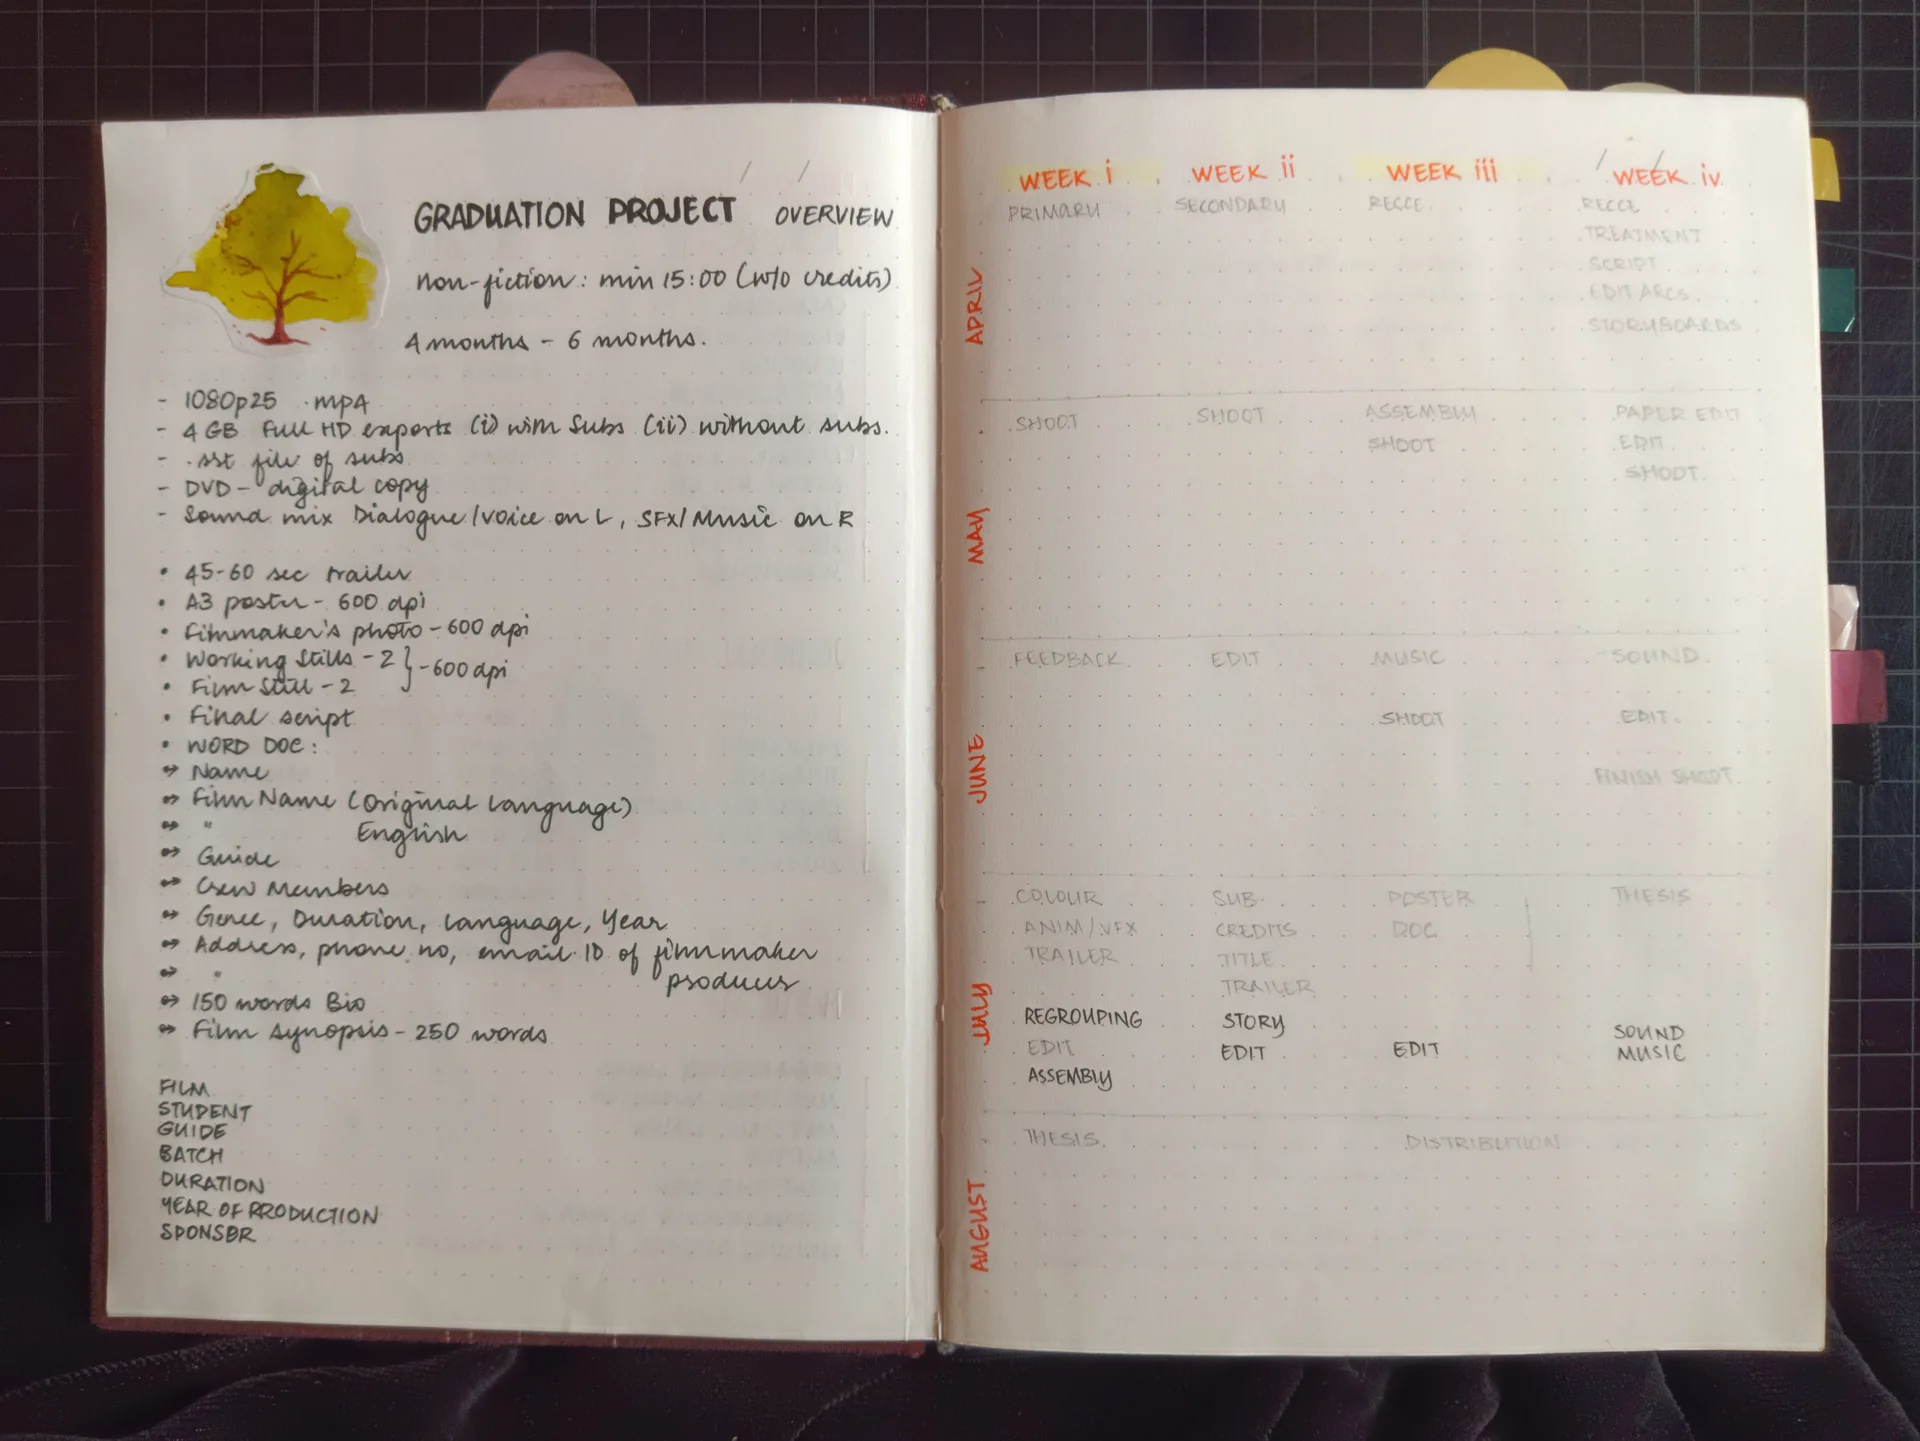 GRADUATION PROJECT OVERVIEW
non-fiction: min 15:00 (w/o credits)
4 months - 6 months.
- 1080p25 .mp4
- 4 GB Full HD exports (i) with Subs (ii) without subs.
- .srt file of subs
- DVD - digital copy
- Sound mix Dialogue/Voice on L, SFX/Music on R
• 45-60 sec trailer
• A3 poster - 600 dpi
• Filmmaker's photo - 600 dpi
• Working Stills - 2 } - 600 dpi
• Film Still - 2
• Final script
• WORD DOC:
↔ Name
↔ Film Name (Original Language)
↔ " English
↔ Guide
↔ Crew Members
↔ Genre, Duration, Language, Year
↔ Address, phone no, email ID of filmmaker
↔ " producer
↔ 150 words Bio
↔ Film Synopsis - 250 words
FILM
STUDENT
GUIDE
BATCH
DURATION
YEAR OF PRODUCTION
SPONSOR
WEEK i WEEK ii WEEK iii WEEK iv
APRIL
PRIMARY SECONDARY RECCE RECCE
TREATMENT
SCRIPT
EDIT ARCS
STORYBOARDS
MAY
SHOOT SHOOT ASSEMBLY PAPER EDIT
SHOOT EDIT
SHOOT
JUNE
FEEDBACK EDIT MUSIC SOUND
SHOOT EDIT
FINISH SHOOT
JULY
COLOUR SUB POSTER THESIS
ANIM/VFX CREDITS DOC
TRAILER TITLE
TRAILER
REGROUPING STORY SOUND
EDIT EDIT EDIT MUSIC
ASSEMBLY
AUGUST
THESIS DISTRIBUTION